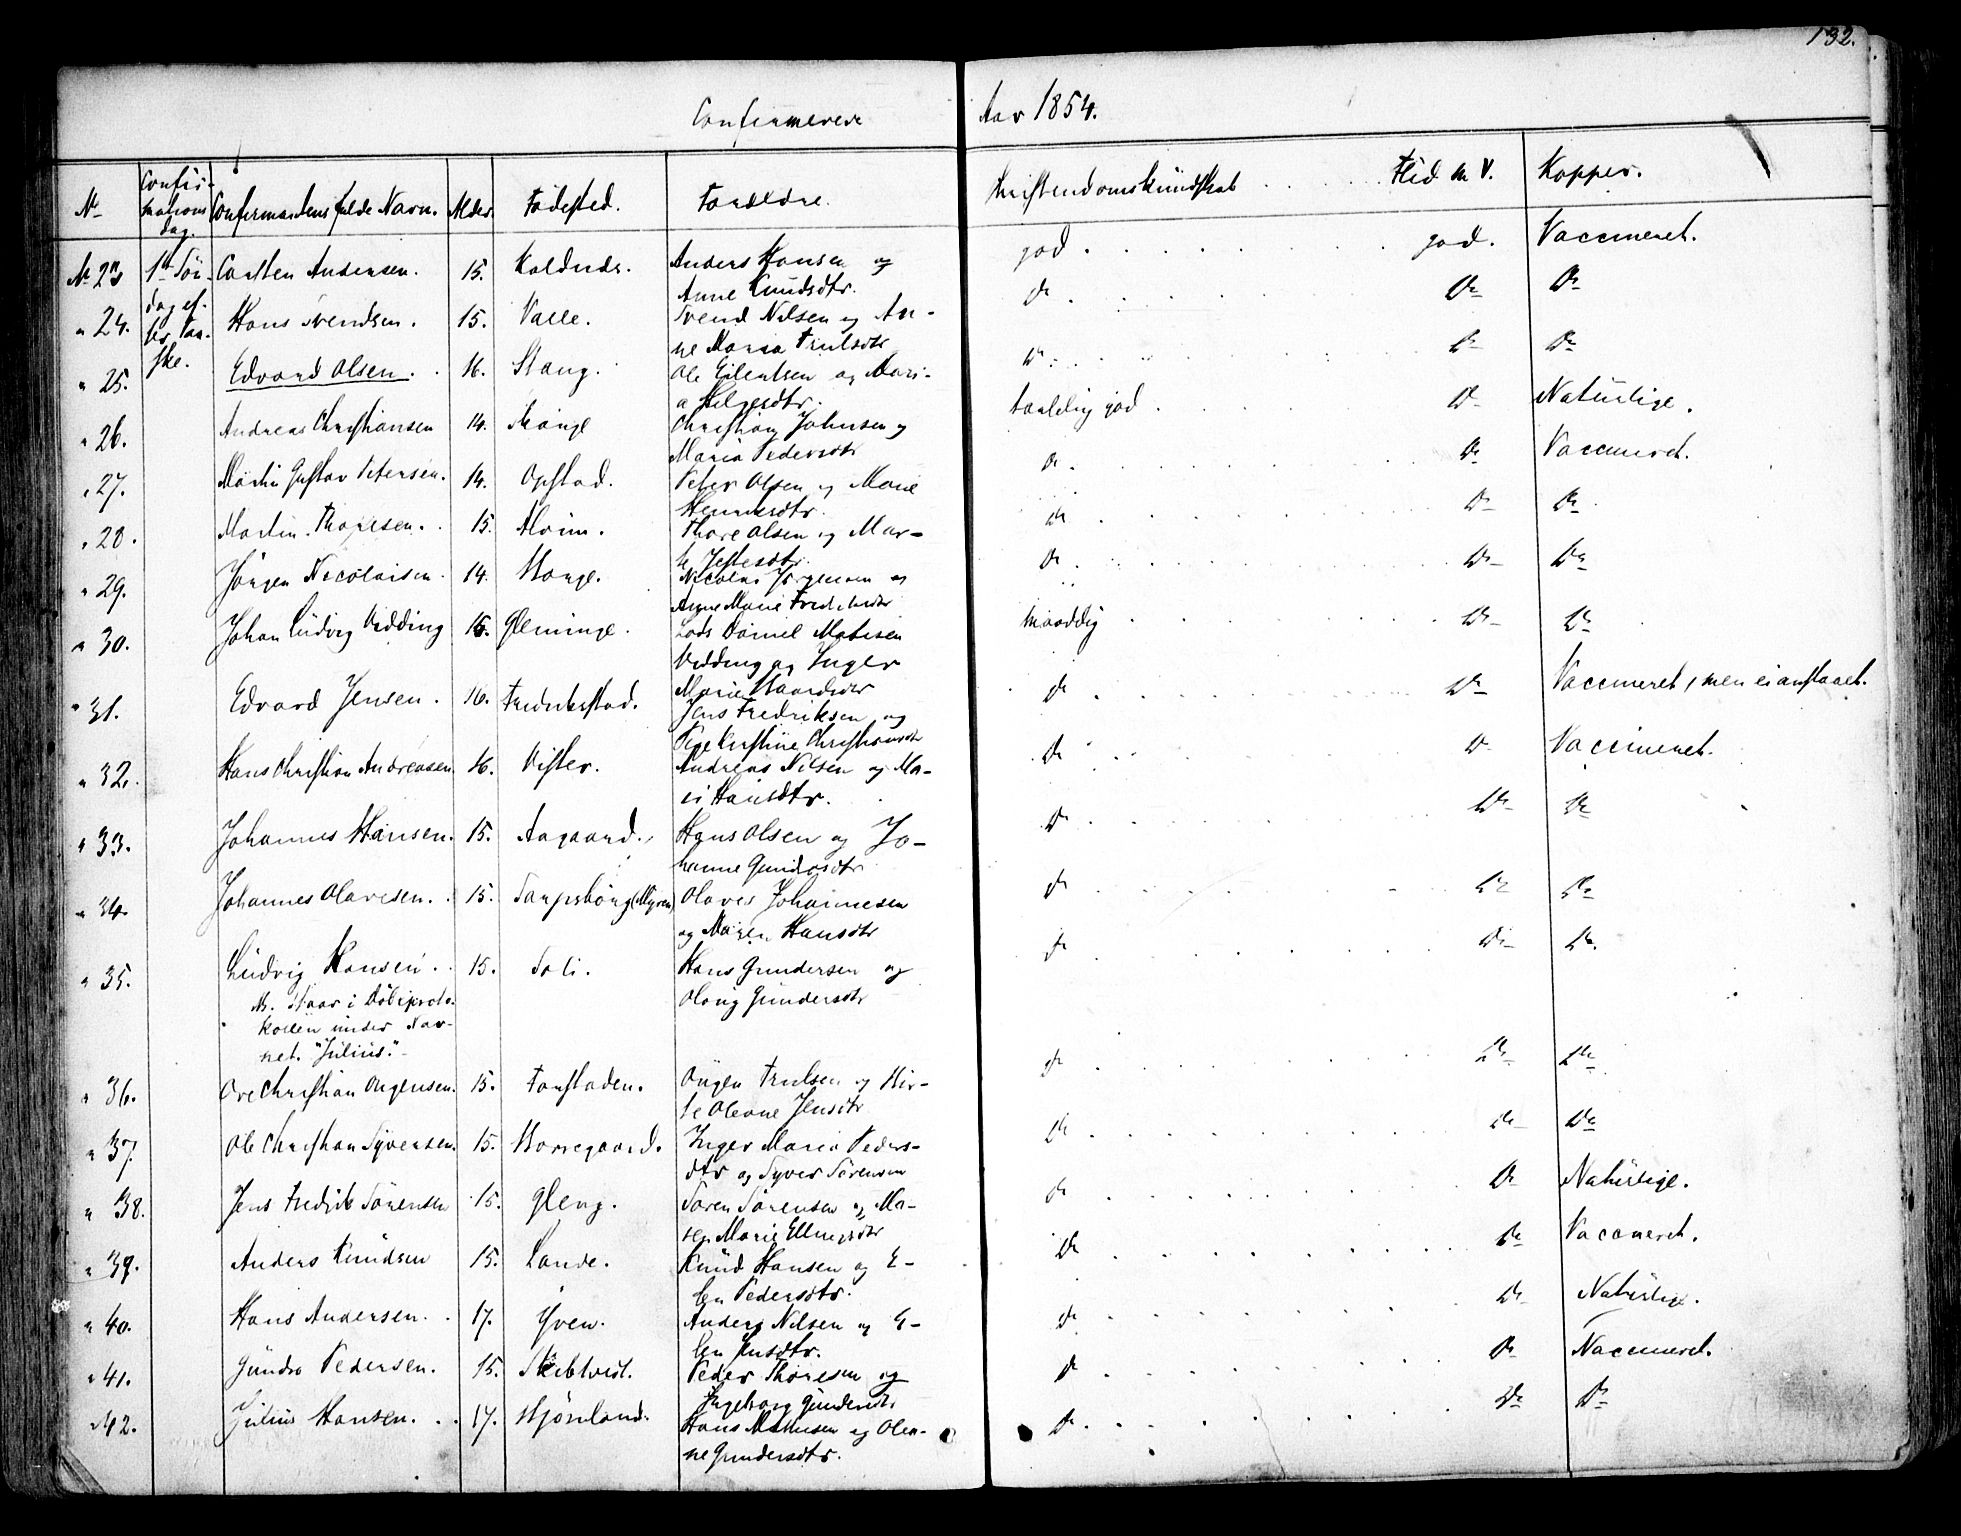 132.
Confirmerede Aar 1854.
No Confirmations dag. Confirmantens fulde Navn. Alder. Födested. Forældre. Christendomskundskab . . . . Flid m. V. Kopper.
No 23 1ste Sön- Carsten Andersen. 15. Anders Hansen og god . . . . god. Vaccineret.
dag ef- Anne Knudsdtr.
" 24. ter Paa- Hans Svendsen. 15. Valle. Svend Nilsen og An- Do . . . . Do Do
ske. ne Maria Trulsdtr
" 25. Edvard Olsen. 16. Stang. Ole Eilertsen og Mari- Do . . . . Do Do
a Helgesdtr.
" 26. Andreas Christiansen 14. Christian Johnsen og temlig god . . . . Do Naturlige.
Maria Pedersdtr
" 27. Martin Gustav Petersen. 14. Opstad. Peter Olsen og Marie Do . . . . Do Vaccineret.
" 28. Martin Thoresen. 15. Thore Olsen og Mar- Do . . . . Do Do
" 29. Jörgen Nicolaisen. 14. Hauge. Nicolai Jörgensen og Do . . . . Do Do
Anne Marie
" 30. Johan Ludvig Vedding 15. Glemminge. Lads Daniel Matisen maadelig . . . . Do Do
Vedding og Inger
Marie
" 31. Edvard Jensen. 16. Fredrikstad. Jens Fredriksen og Do . . . . Do Vaccineret, men ei anslaaet.
Christiansdtr
" 32. Hans Christian Andreasen 16. Vister. Andreas Nilsen og Ma- Do . . . . Do Vaccineret.
ri Hansdtr.
" 33. Johannes Hansen. 15. Aagaard. Hans Olsen og Jo- Do . . . . Do Do
hanne Gundersdtr
" 34. Johannes Olavesen. 15. Sarpsborg (Myren) Olaves Johannesen Do . . . . Do Do
og Maren Hansdtr
" 35. Ludvig Hansen. 15. Soli. Hans Gundersen og Do . . . . Do Do
NB. Staar i Döbsproto- Olavig Gundersdtr
kollen under Nav-
net "Julius."
" 36. Ove Christian Ongensen. 15. Torstaden. Ongen Trulsen og Kir- Do . . . . Do Do
te Oleane Jensdtr
" 37. Ole Christian Syversen. 15. Borregaard. Inger Maria Peders- Do . . . . Do Do
dtr og Syver Sörensen
" 38. Jens Fredrik Sörensen 15. Gleng. Sören Sörensen og Ma- Do . . . . Do Naturlige.
ren Marie Ellingsdtr
" 39. Anders Knudsen 15. Lande. Knud Hansen og E- Do . . . . Do Vaccineret.
len Pedersdtr.
" 40. Hans Andersen. 17. Yven. Anders Nilsen og E- Do . . . . Do Naturlige.
len Jensdtr.
" 41. Gundro Pedersen. 15. Skibtvedt. Peder Thoresen og Do . . . . Do Vaccineret.
Ingeborg Gundersdtr
" 42. Julius Hansen. 17. Hans Mathisen og Olea- Do . . . . Do Do
ne Gundersdtr.